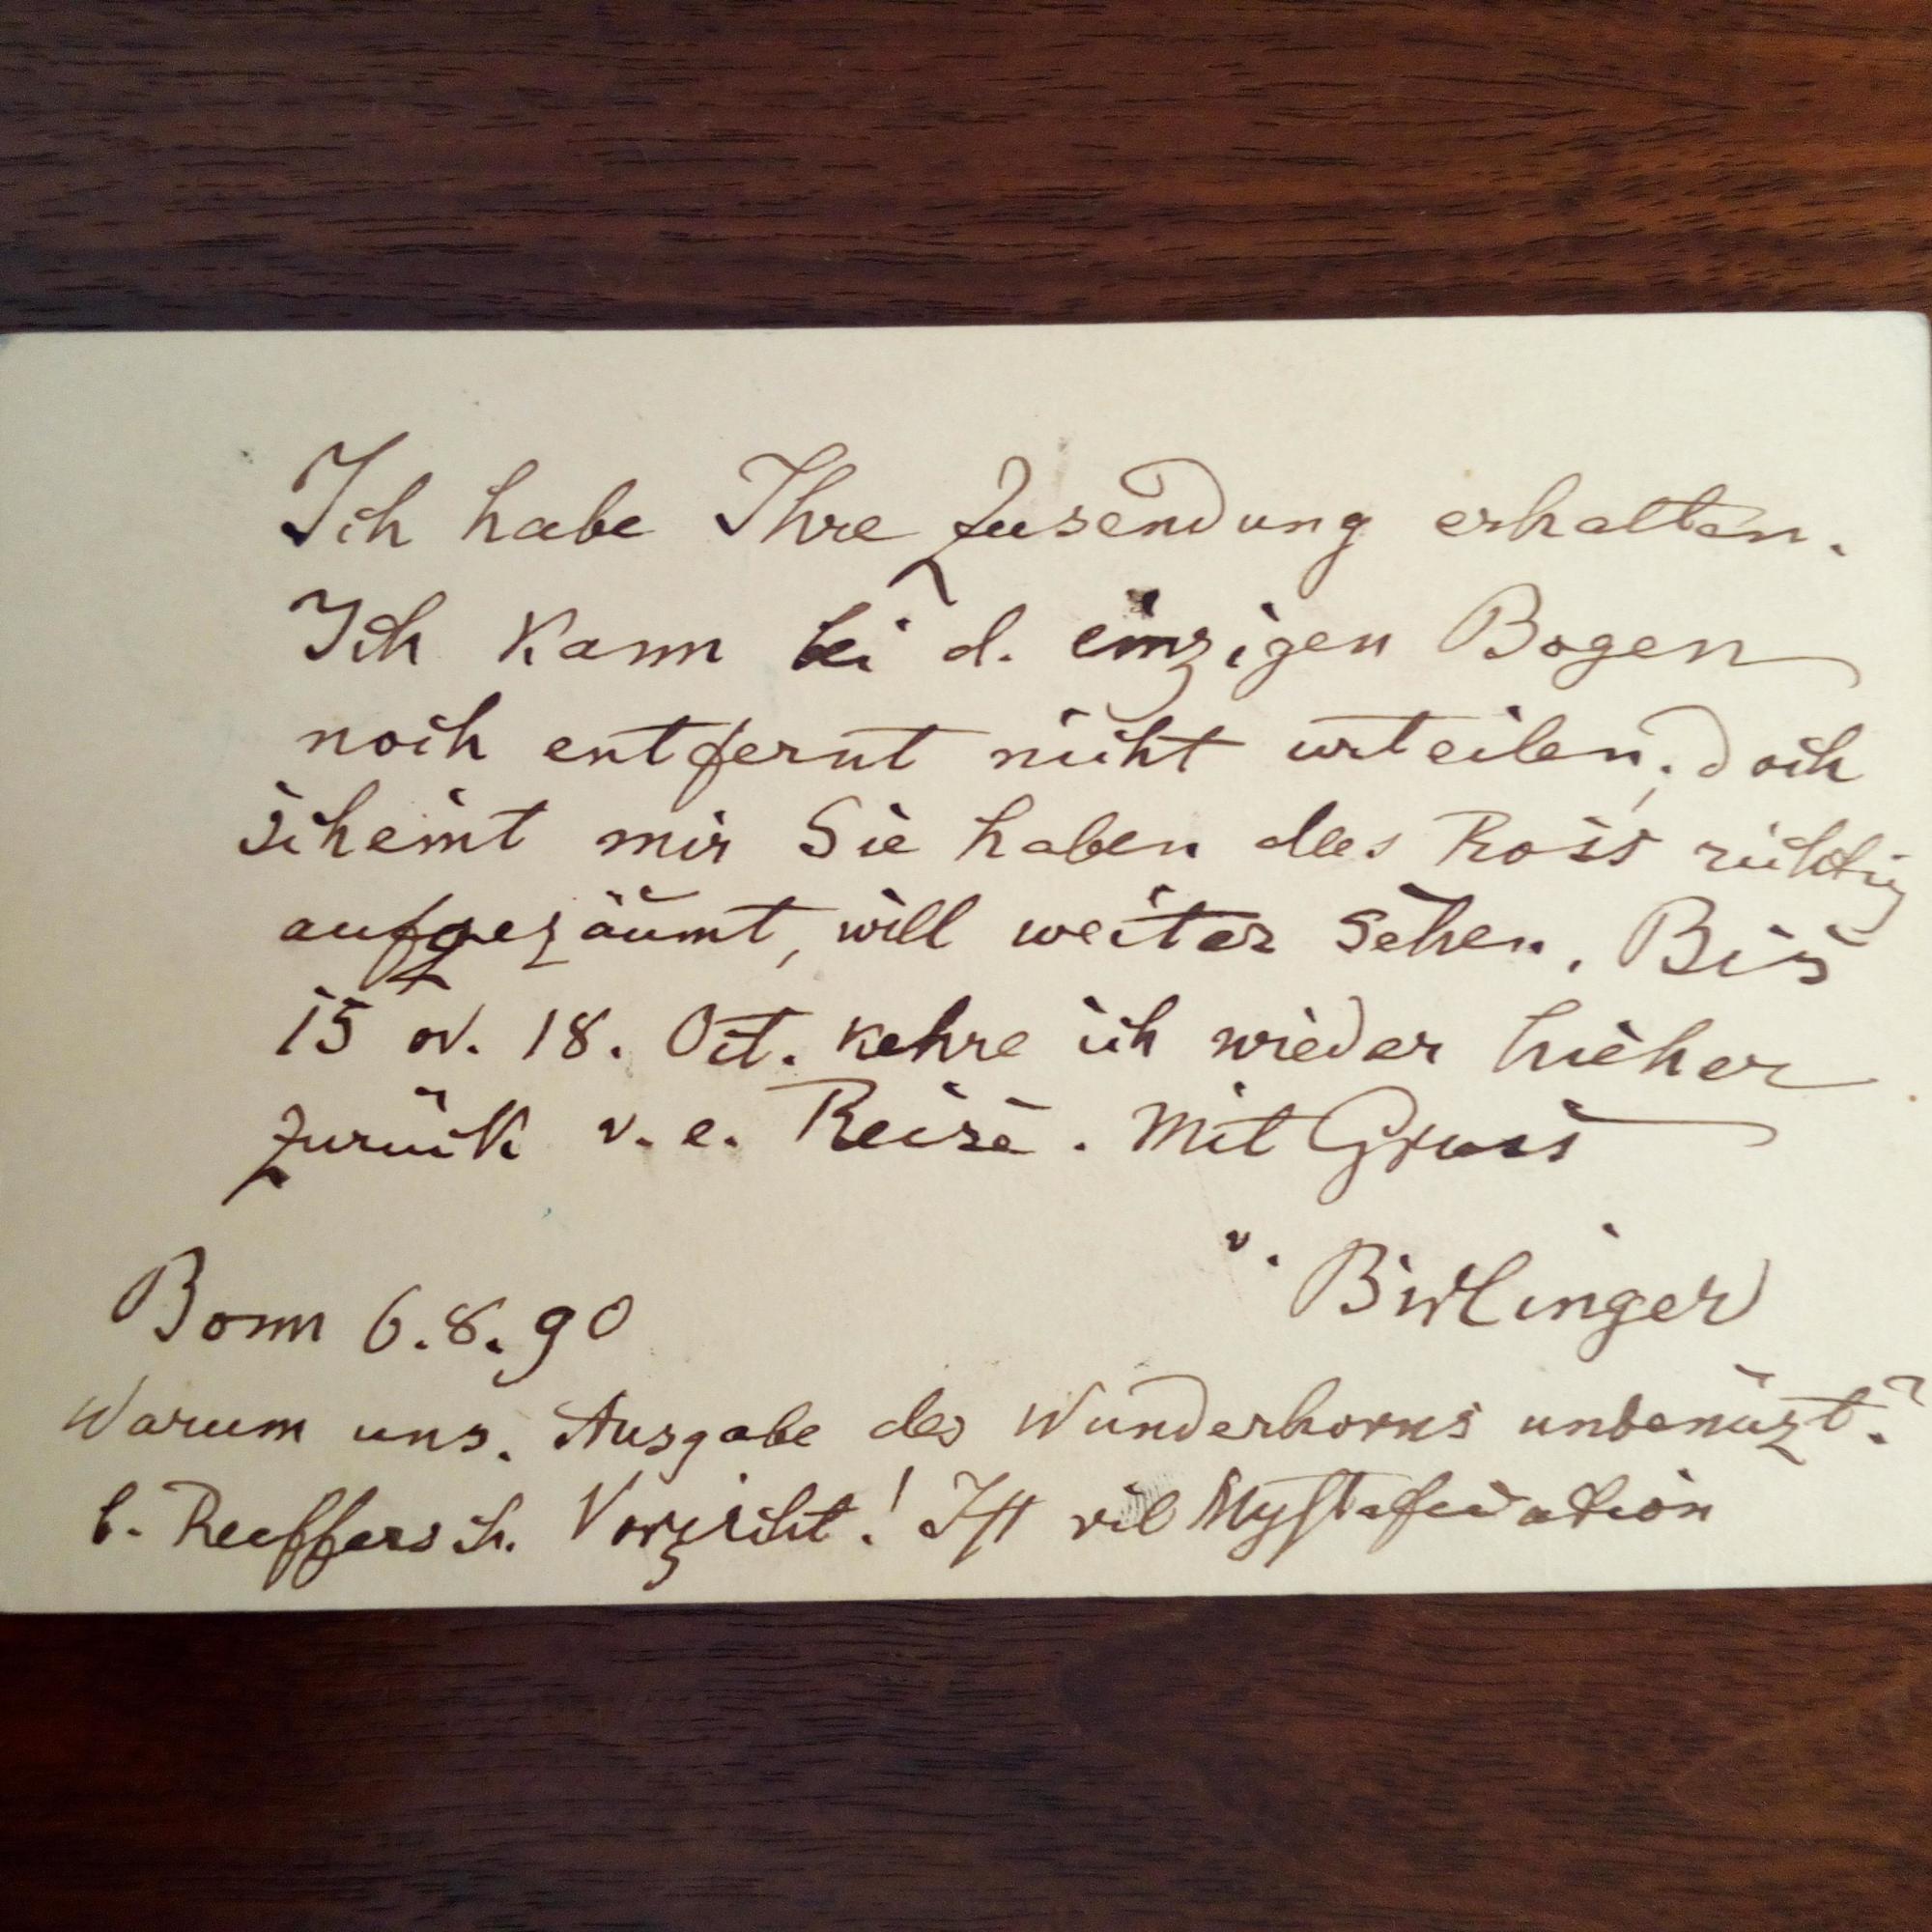 Ich habe Ihre Zusendung erhalten.
Ich kann bei d. einzigen Bogen
noch entfernt nicht urteilen; doch
scheint mir Sie haben das Ross richtig
aufgezäumt, will weiter sehen. Bis
15 od. 18. Oct. kehre ich wieder hieher
zurück v. e. Reise. Mit Gruss
v. Birlinger
Bonn 6.8.90
Warum uns. Ausgabe des Wunderhorns unbenüzt?
b. Reiffersch. Vorsicht! Ist vil Mystification